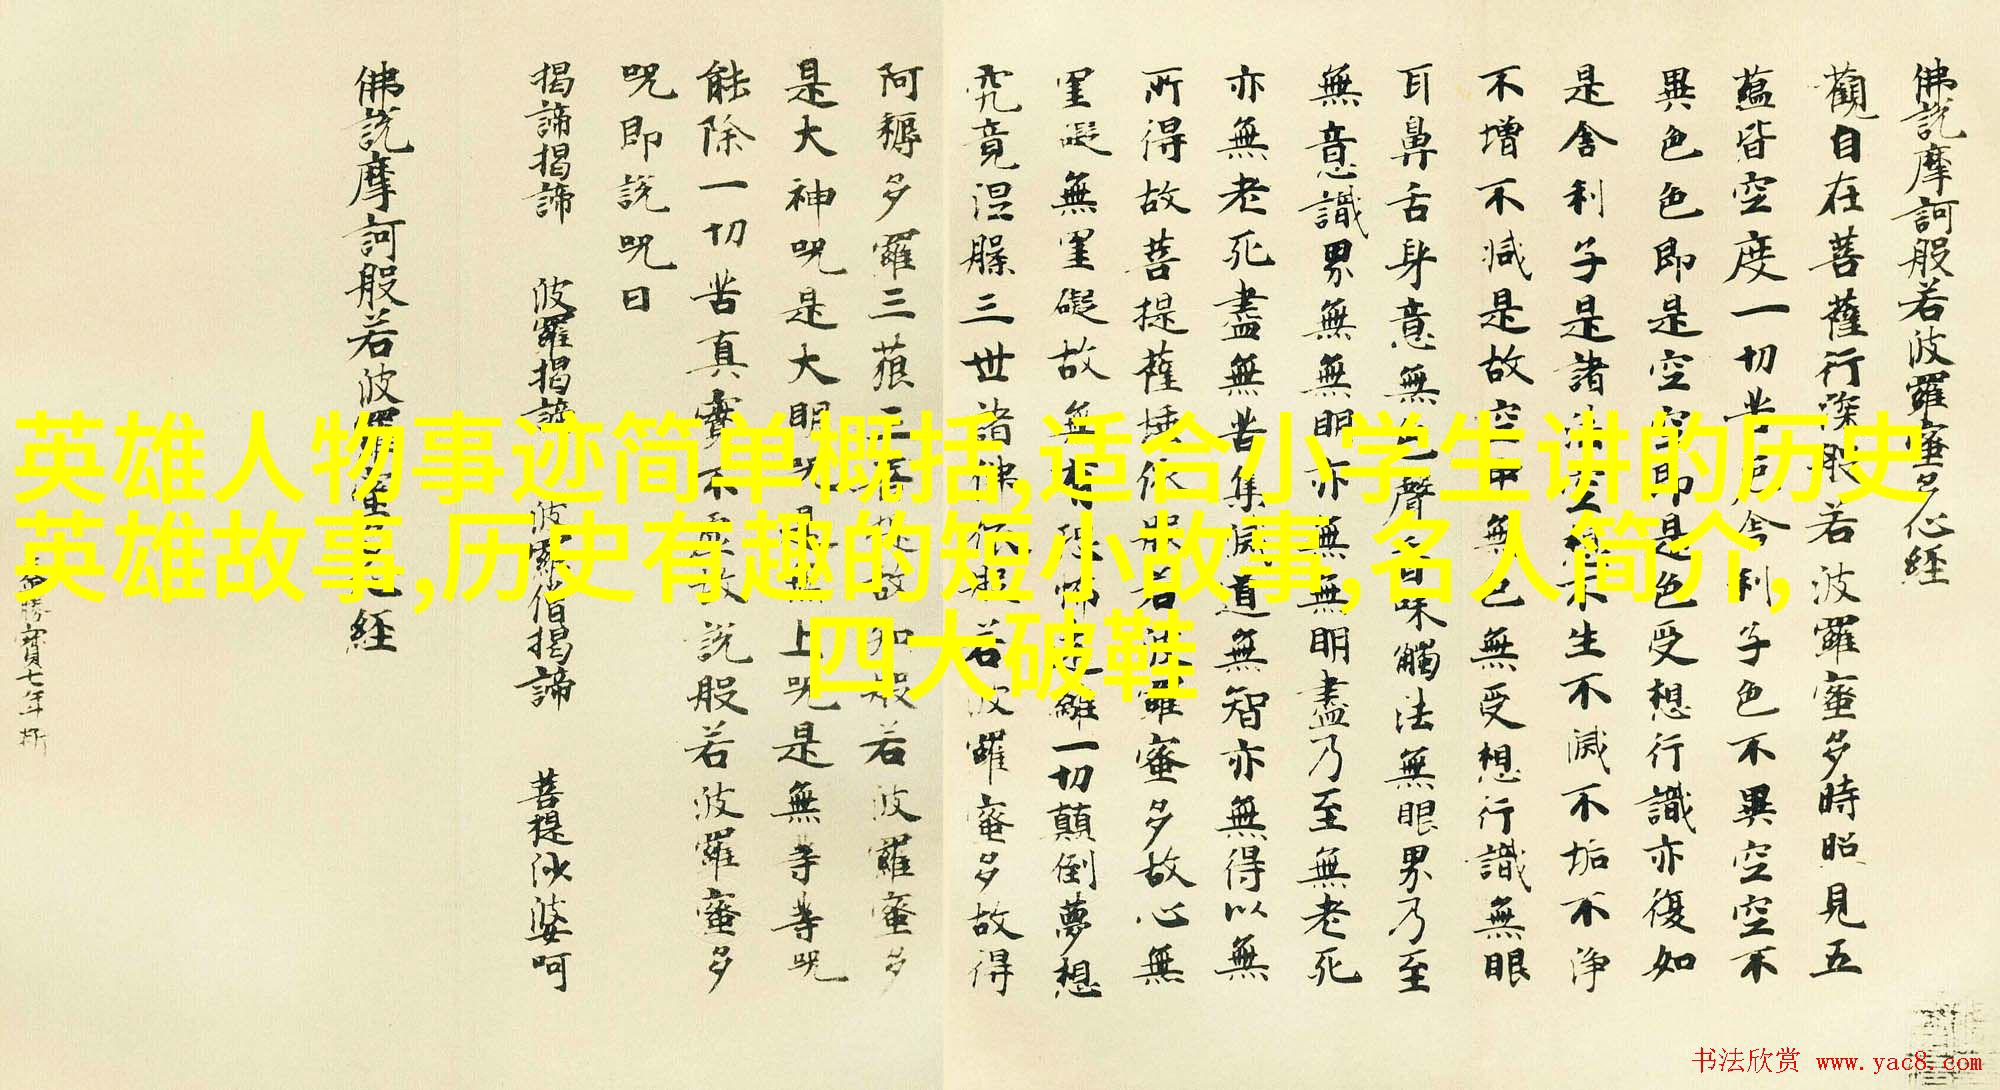 佛說摩訶般若波羅蜜多心經
觀自在菩薩行深般若波羅蜜多時照見五
蘊皆空度一切苦厄舍利子色不異空空不
異色色即是空空即是色受想行識亦復如
是舍利子是諸法空相不生不滅不垢不淨
不增不減是故空中無色無受想行識無眼
耳鼻舌身意無色聲香味觸法無眼界乃至
無意識界無無明亦無無明盡乃至無老死
亦無老死盡無苦集滅道無智亦無得以無
所得故菩提薩埵依般若波羅蜜多故心無
罣礙無罣礙故無有恐怖遠離一切顛倒夢想
究竟涅槃三世諸佛依般若波羅蜜多故得
阿耨多羅三藐三菩提故知般若波羅蜜多
是大神咒是大明咒是無上咒是無等等咒
能除一切苦真實不虛故說般若波羅蜜多
咒即說咒曰
揭諦揭諦 波羅揭諦 波羅僧揭諦 菩提沙婆呵
佛說摩訶般若波羅蜜多心經
勝寶七年
英雄人物事迹简单概括,适合小学生讲的历史
英雄故事,历史有趣的短小故事,名人简介,
四大破鞋
书法欣赏 www.yac8.com